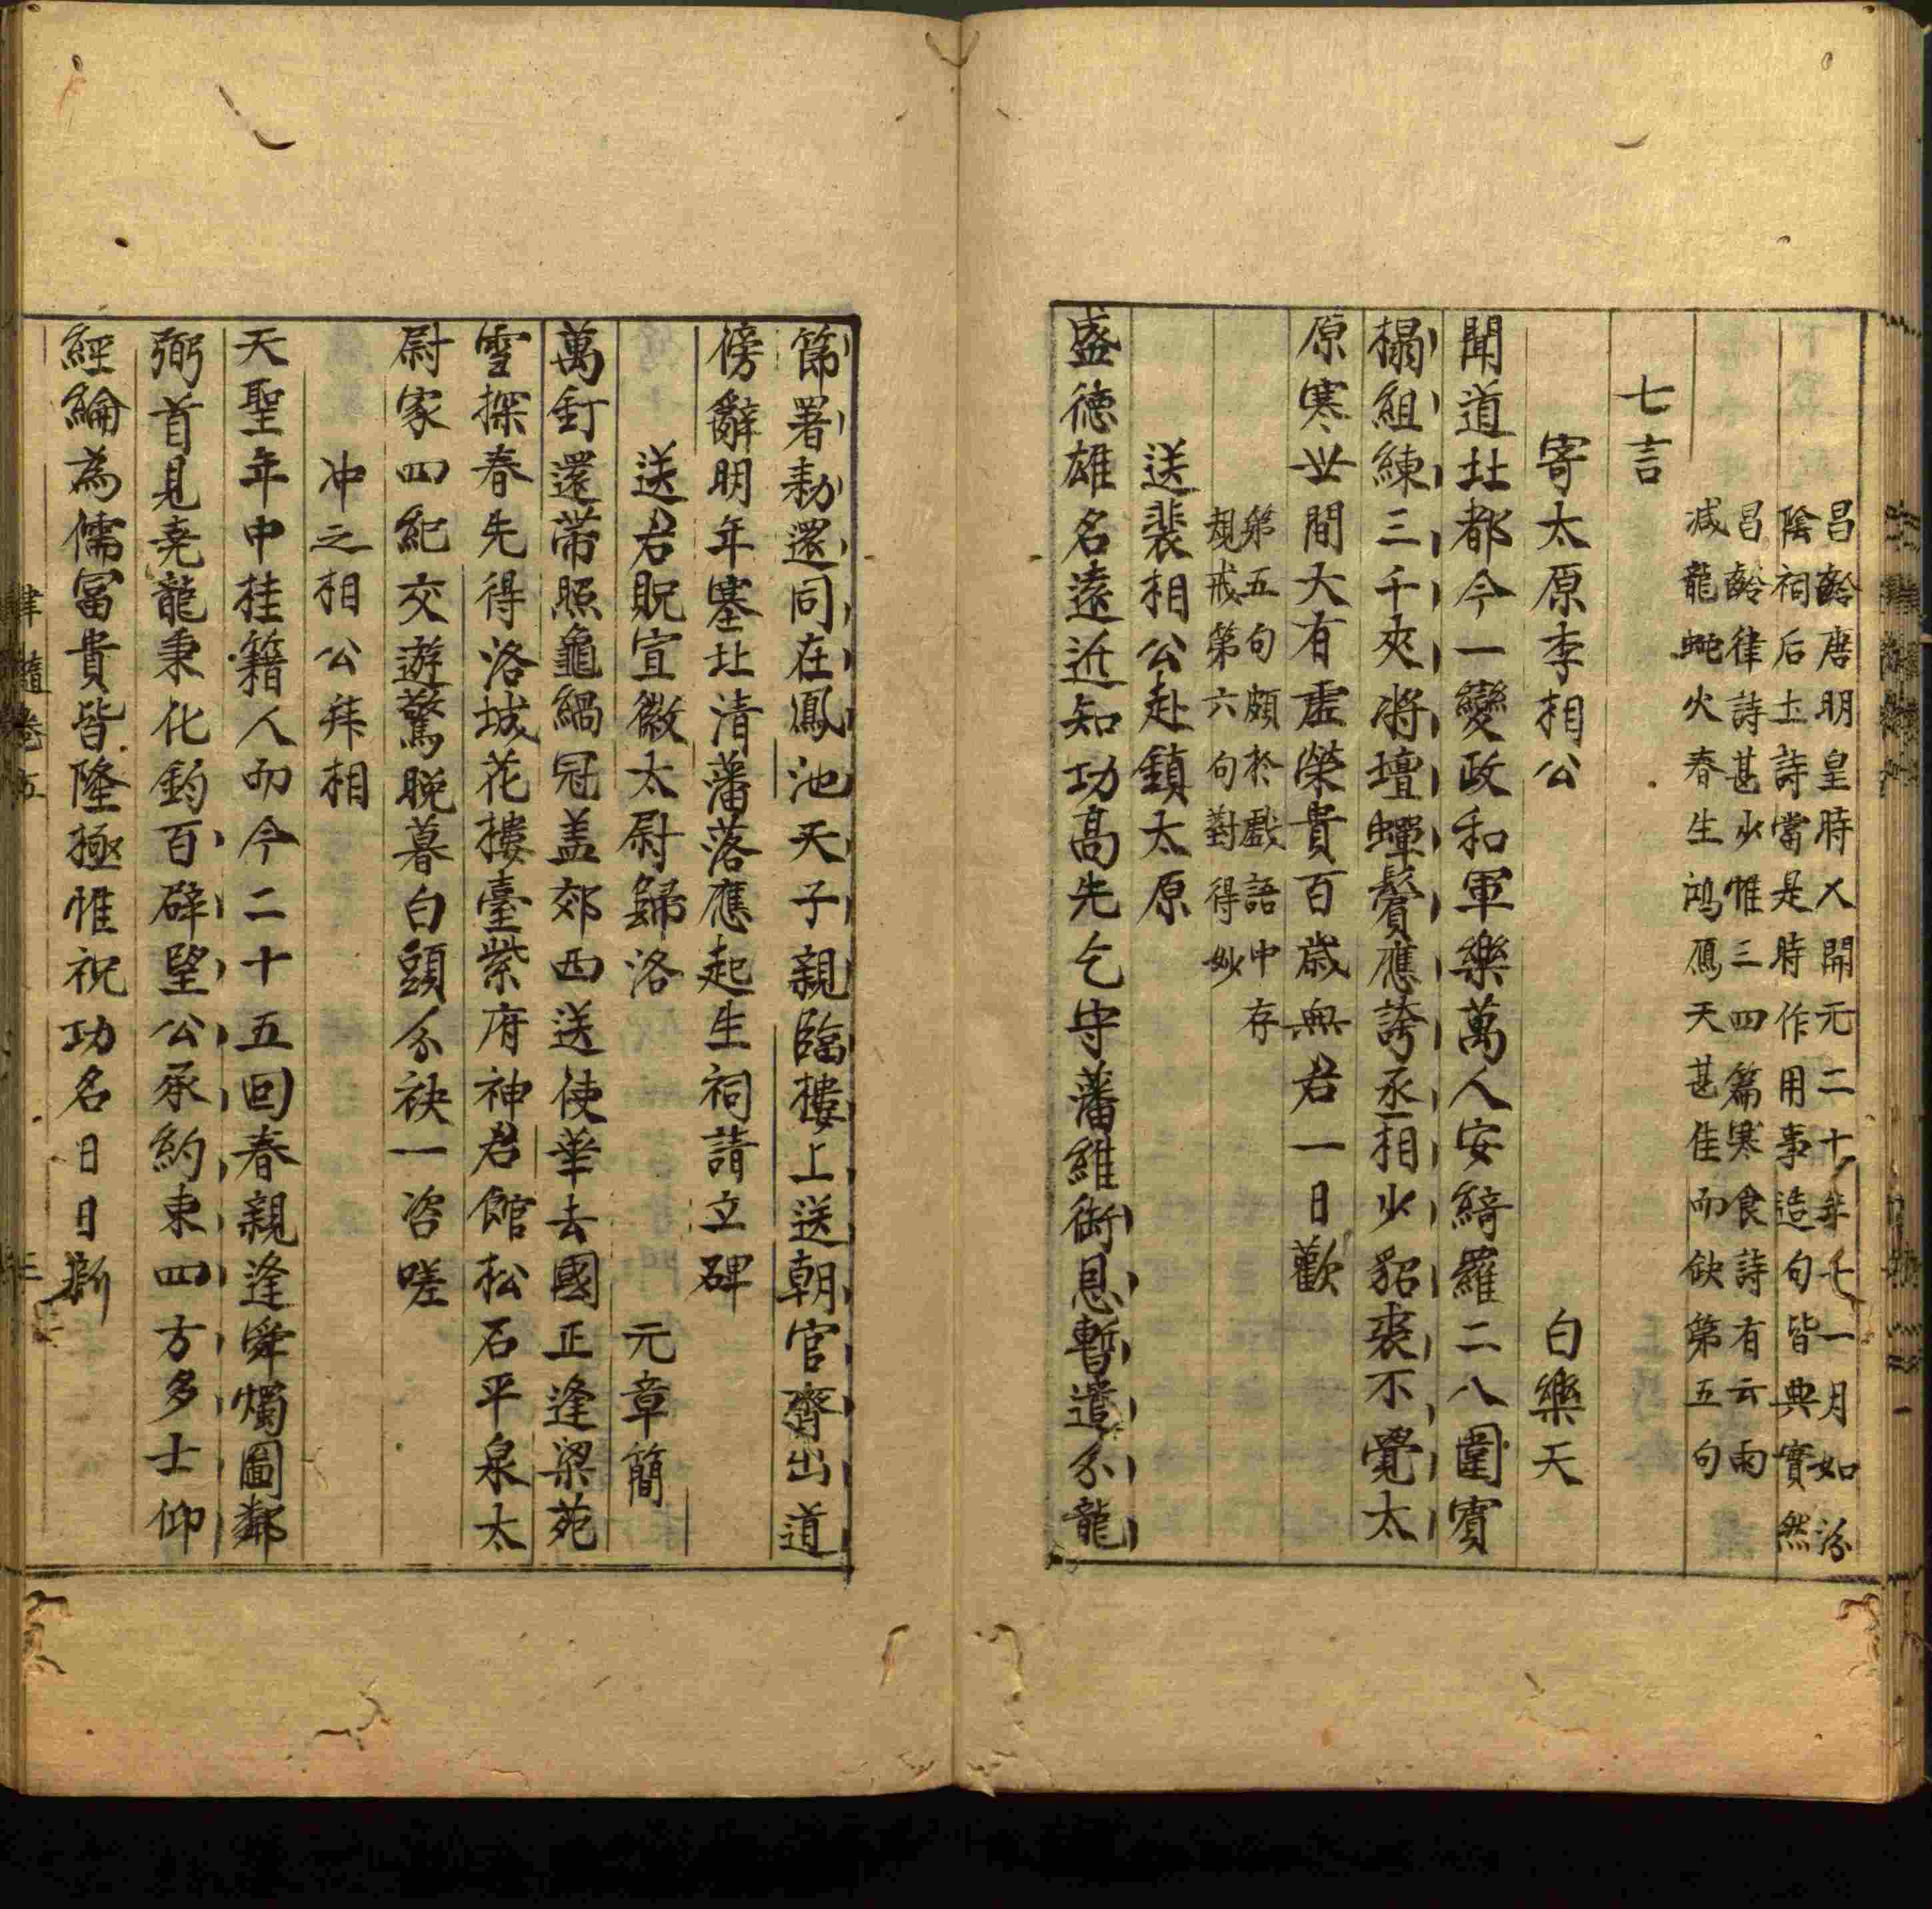 昌齡唐明皇時人開元二十年七一月如汾
陰祠后土詩當是時作用事造句皆典實然
昌齡律詩甚少惟三四篇寒食詩有云雨
減龍蛇火春生鴻鴈天甚佳而缺第五句
七言
寄太原李相公 白樂天
聞道北都今一變政和軍樂萬人安綺羅二八圍賓
榻組練三千夾將壇蟬鬢應誇丞相少貂裘不覺太
原寒世間大有虛榮貴百歲無君一日歡
第五句頗於戲語中存
規戒第六句對得妙
送裴相公赴鎮太原
盛德雄名遠近知功高先乞守藩維銜恩暫遣分龍
節署敕還同在鳳池天子親臨樓上送朝官齊出道
傍辭明年塞北清藩落應起生祠請立碑
送君貺宣徽太尉歸洛 元章簡
萬釘還帶照龜緺冠盖郊西送使華去國正逢梁苑
雪探春先得洛城花樓臺紫府神君館松石平泉太
尉家四紀交遊驚晚暮白頭分袂一咨嗟
冲之相公拜相
天聖年中桂籍人而今二十五回春親逢舜燭圖鄰
弼首見堯龍秉化鈞百辟望公承約束四方多士仰
經綸為儒冨貴皆隆極惟祝功名日日新
律髓卷五 三